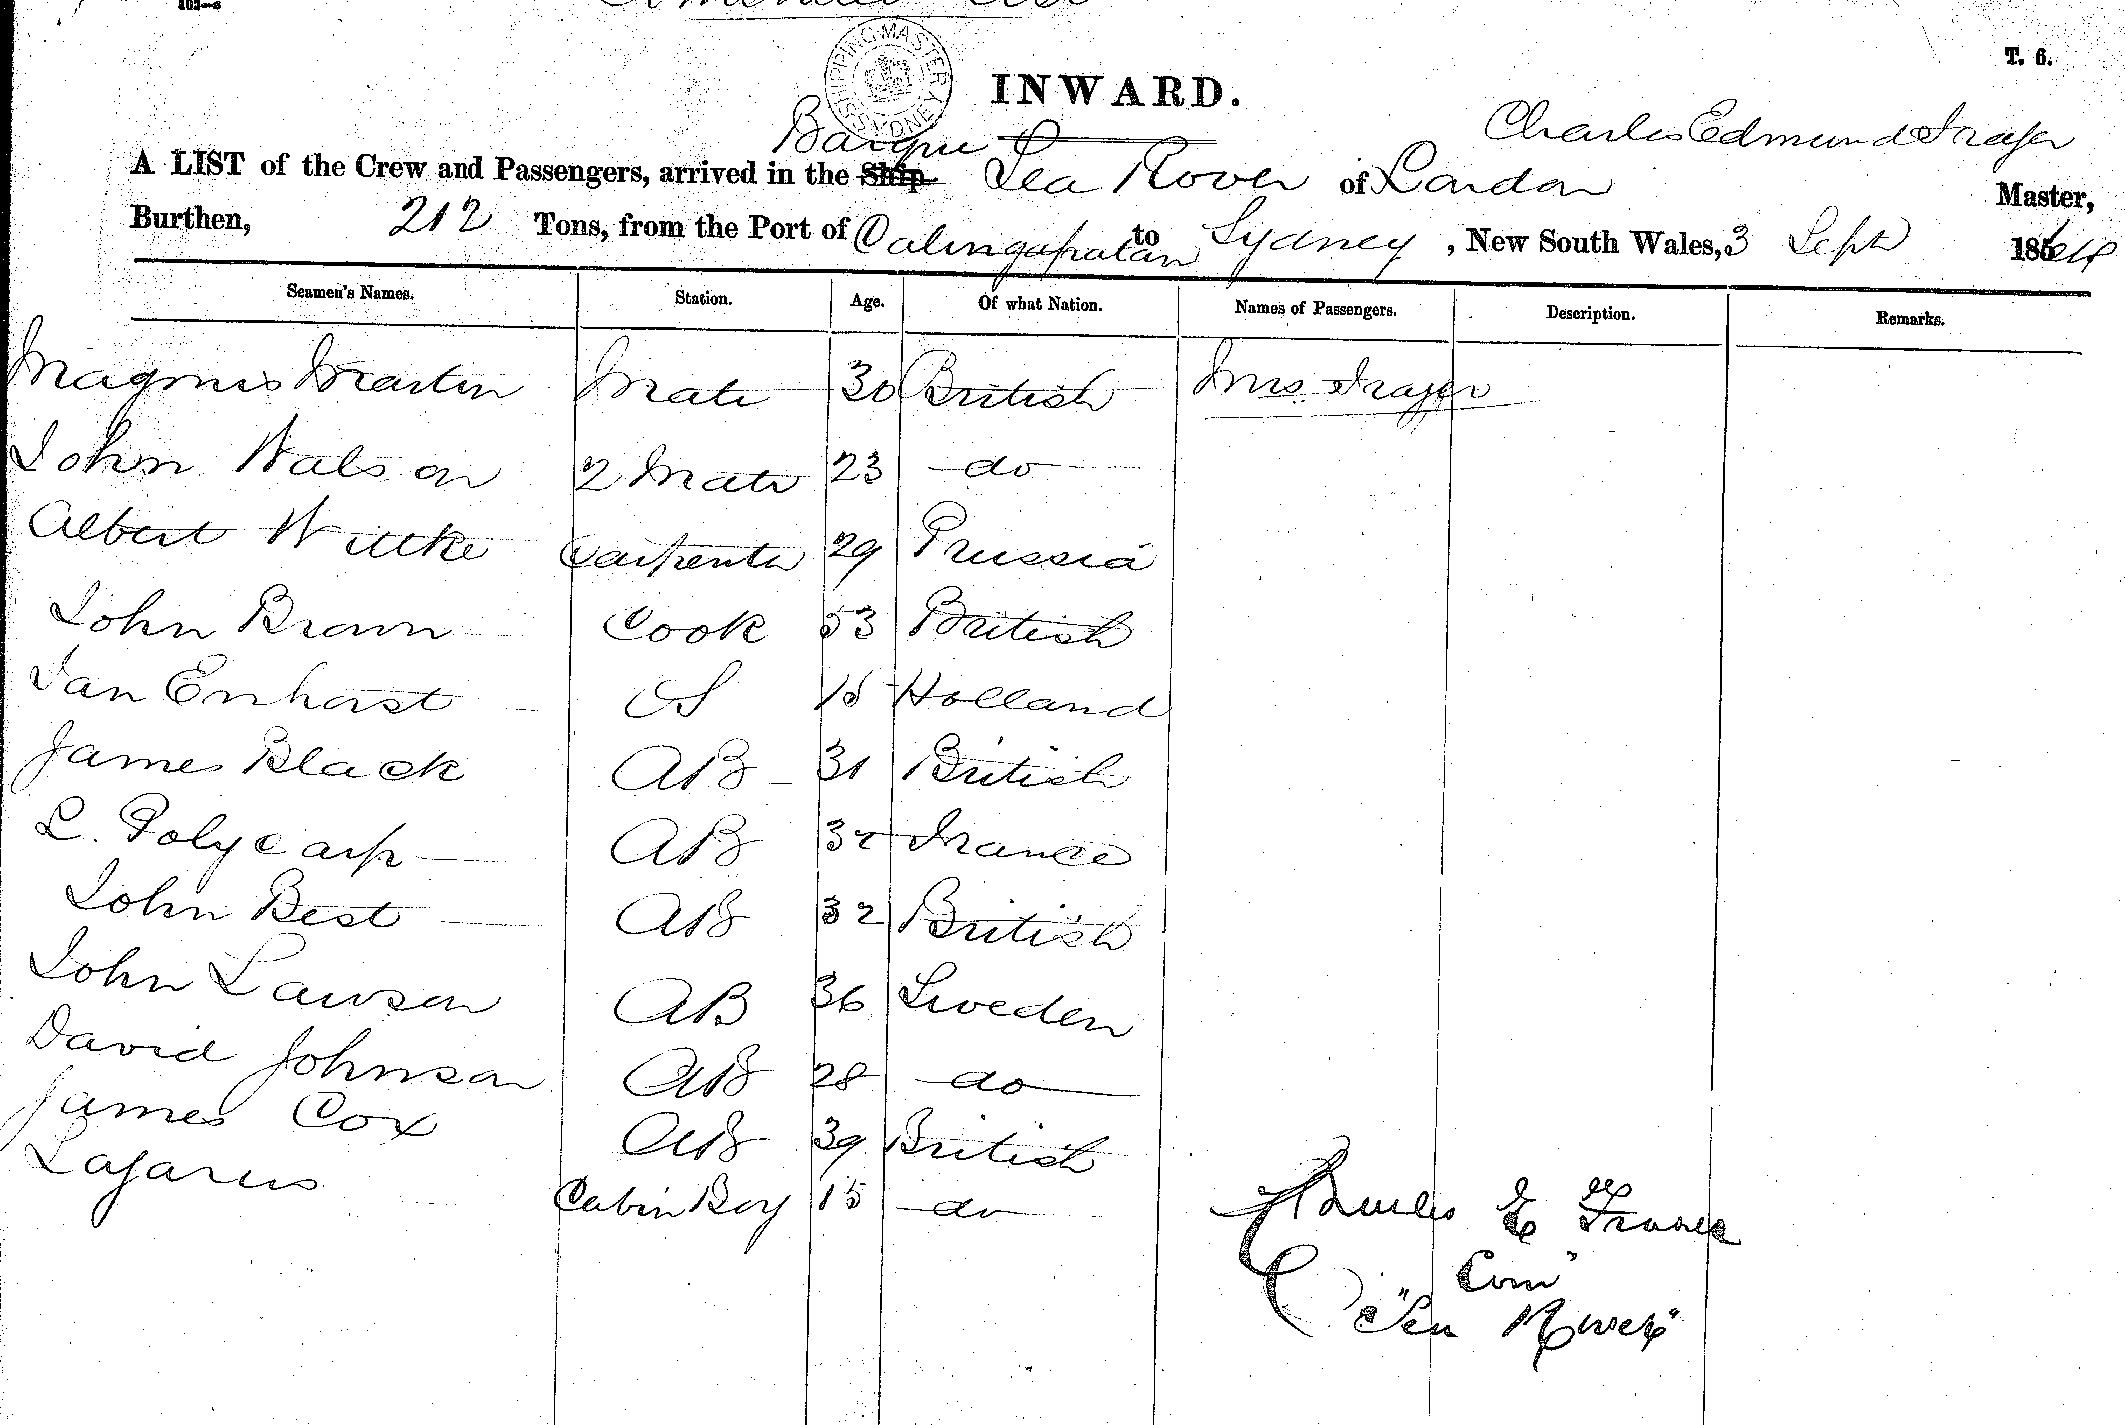 102—6
SHIPPING MASTER SYDNEY
T. 6.
INWARD.
Charles Edmund Frazer
Barque
A LIST of the Crew and Passengers, arrived in the Ship Sea Rover of London Master,
Burthen, 212 Tons, from the Port of Calingapatan to Sydney, New South Wales, 3 Sept 1864
Seamen's Names. Station. Age. Of what Nation. Names of Passengers. Description. Remarks.
Magnus Martin Mate 30 British Mrs. Frazer
John Watson 2 Mate 23 do
Albert Wittke Carpenter 29 Prussia
John Brown Cook 53 British
Jan Enhorst OS Holland
James Black AB 31 British
L. Polycarp AB France
John Best AB 32 British
John Lawson AB 36 Sweden
David Johnson AB 28 do
James Cox AB 39 British
Lazarus Cabin Boy 15 do
Charles E Frazer
Com
"Sea Rover"